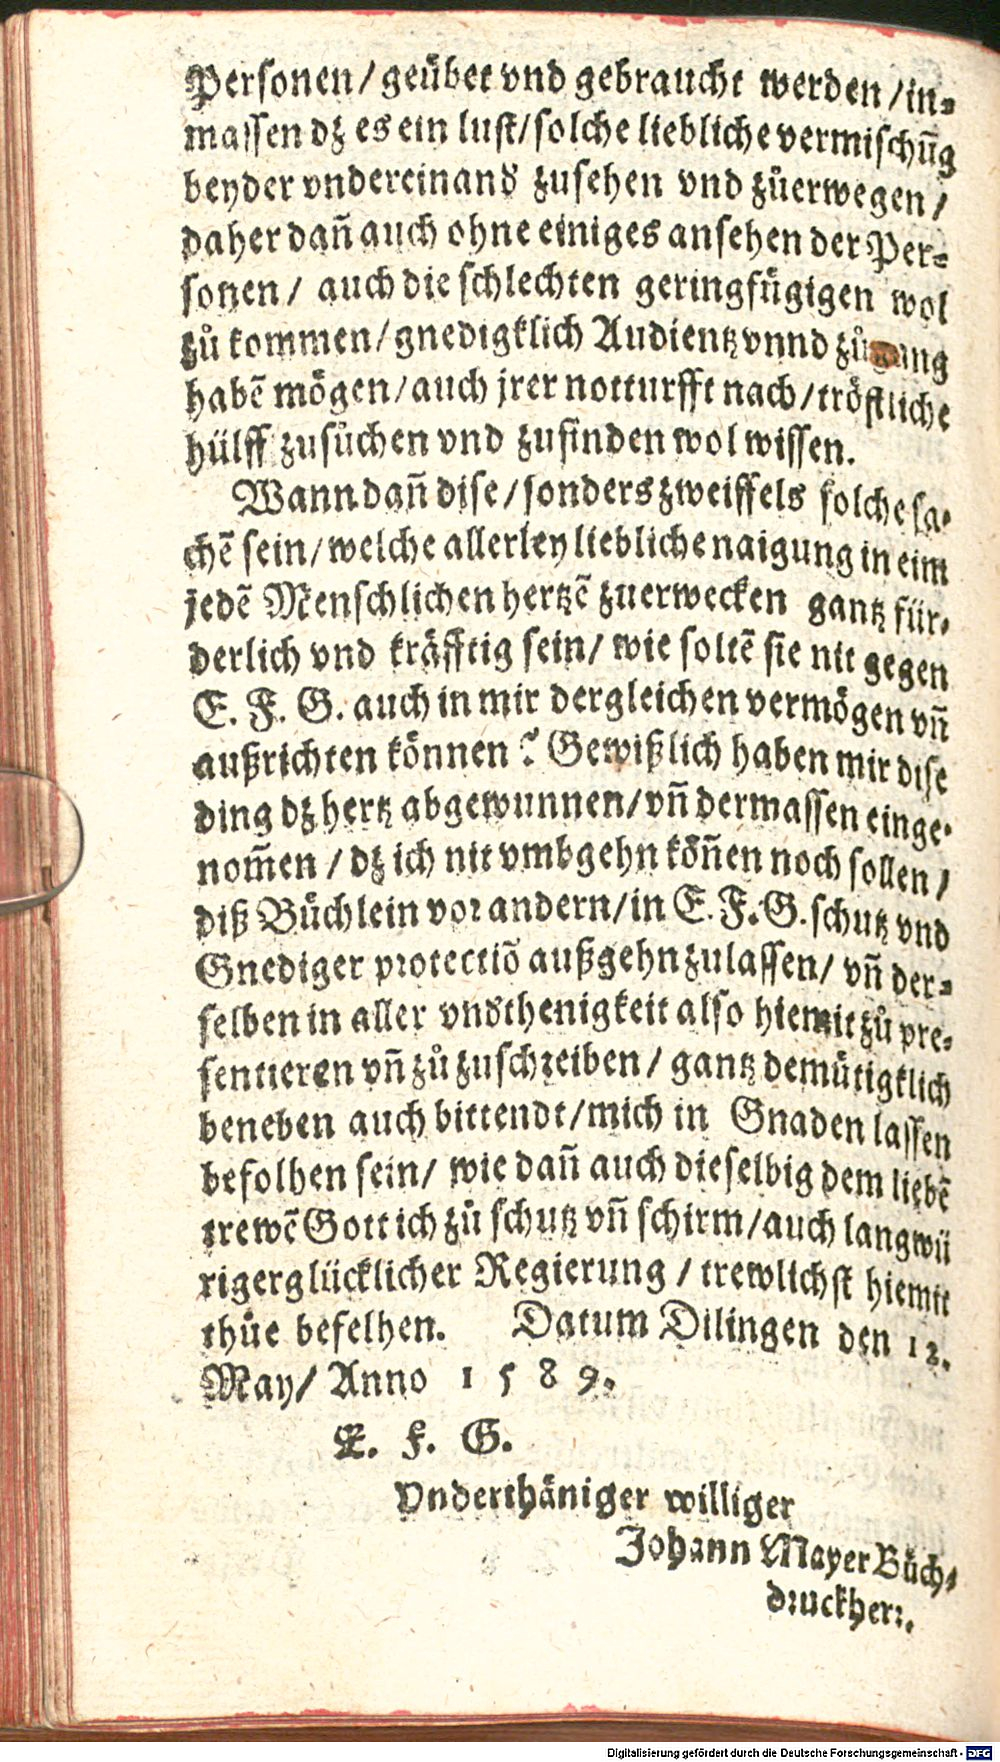 Personen/ geuͤbet vnd gebraucht werden/ in-
massen dz es ein lust/ solche liebliche vermischūg
beyder vndereinand zusehen vnd zuͦerwegen/
daher dañ auch ohne einiges ansehen der Per-
sonen/ auch die schlechten geringfuͤgigen wol
zuͦ kommen/ gnedigklich Audientz vnnd
habē moͤgen/ auch jrer notturfft nach/ troͤstliche
huͤlff zusuͦchen vnd zufinden wol wissen.
Wann dañ dise/ sonders zweiffels solche sa-
chē sein/ welche allerley liebliche naigung in eim
jedē Menschlichen hertzē zuerwecken gantz für-
derlich vnd kraͤfftig sein/ wie soltē sie nit gegen
E. F. G. auch in mir dergleichen vermoͤgen vñ
außrichten koͤnnen? Gewißlich haben mir dise
ding dz hertz abgewunnen/ vñ dermassen einge-
nom̄en/ dz ich nit vmbgehn koͤñen noch sollen/
diß Buͤchlein vor andern/ in E. F. G. schutz vnd
Gnediger protectiō außgehn zulassen/ vñ der-
selben in aller vndthenigkeit also hiemit zuͦ pre-
sentieren vñ zuͦ zuschreiben/ gantz demuͤtigklich
beneben auch bittendt/ mich in Gnaden lassen
befolhen sein/ wie dañ auch dieselbig dem liebē
trewē Gott ich zuͦ schutz vñ schirm/ auch langwü
riger glücklicher Regierung/ trewlichst hiemit
thuͤe befelhen. Datum Dilingen den 12.
May/ Anno 1589.
E. F. G.
Vnderthäniger williger
Johann Mayer Buͦch-
druckherr.
Digitalisierung gefördert durch die Deutsche Forschungsgemeinschaft - DFG